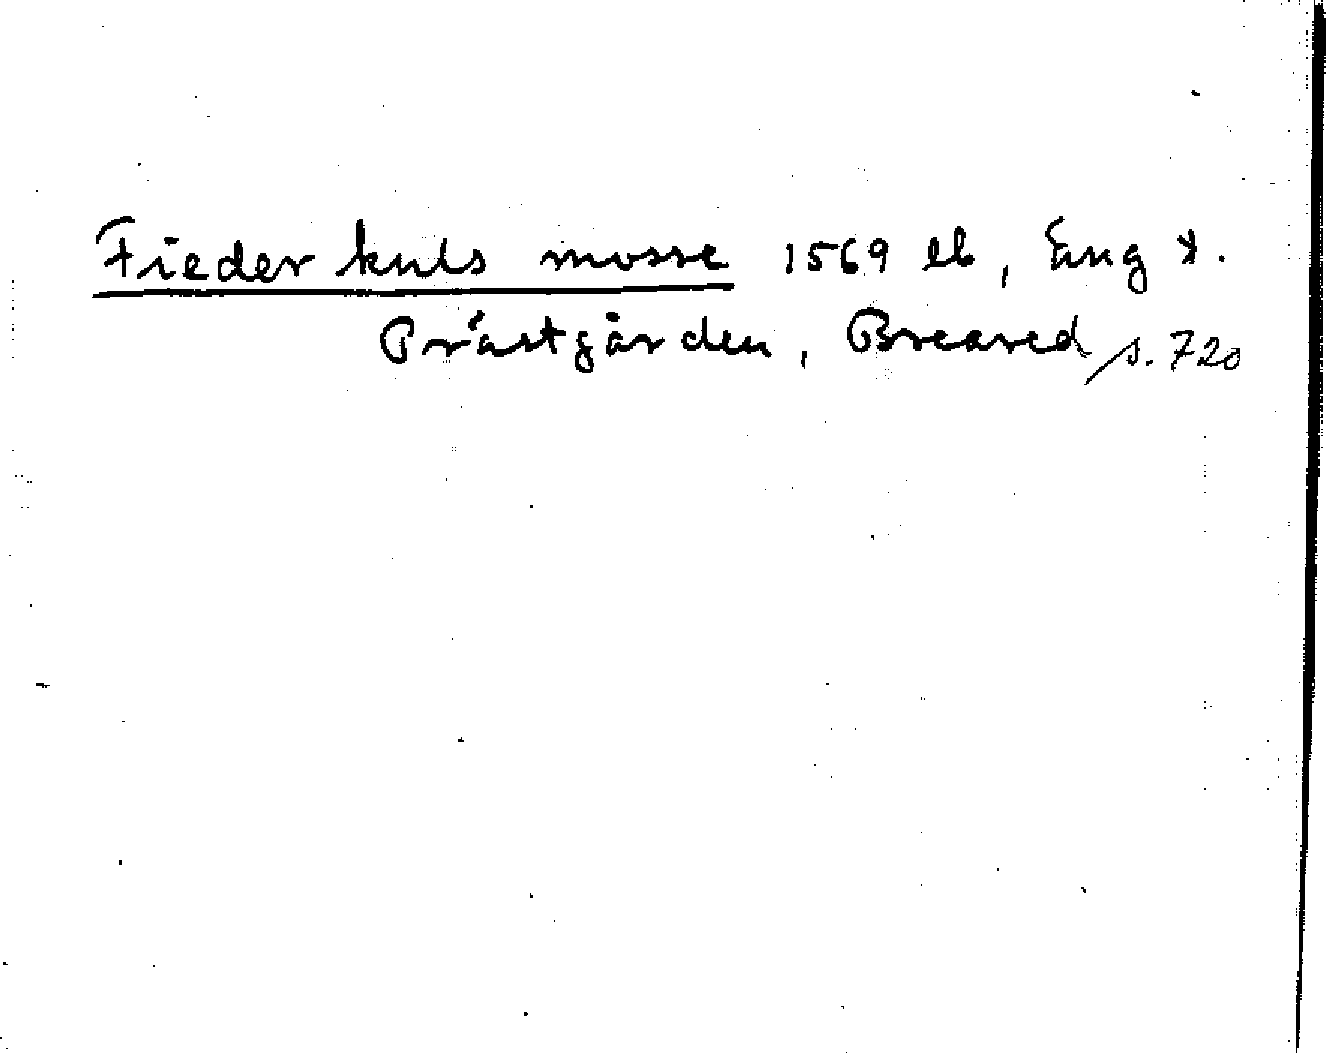 Fiederkuls mosse 1569 lb, Eng t.
Prästgården, Breared s. 720